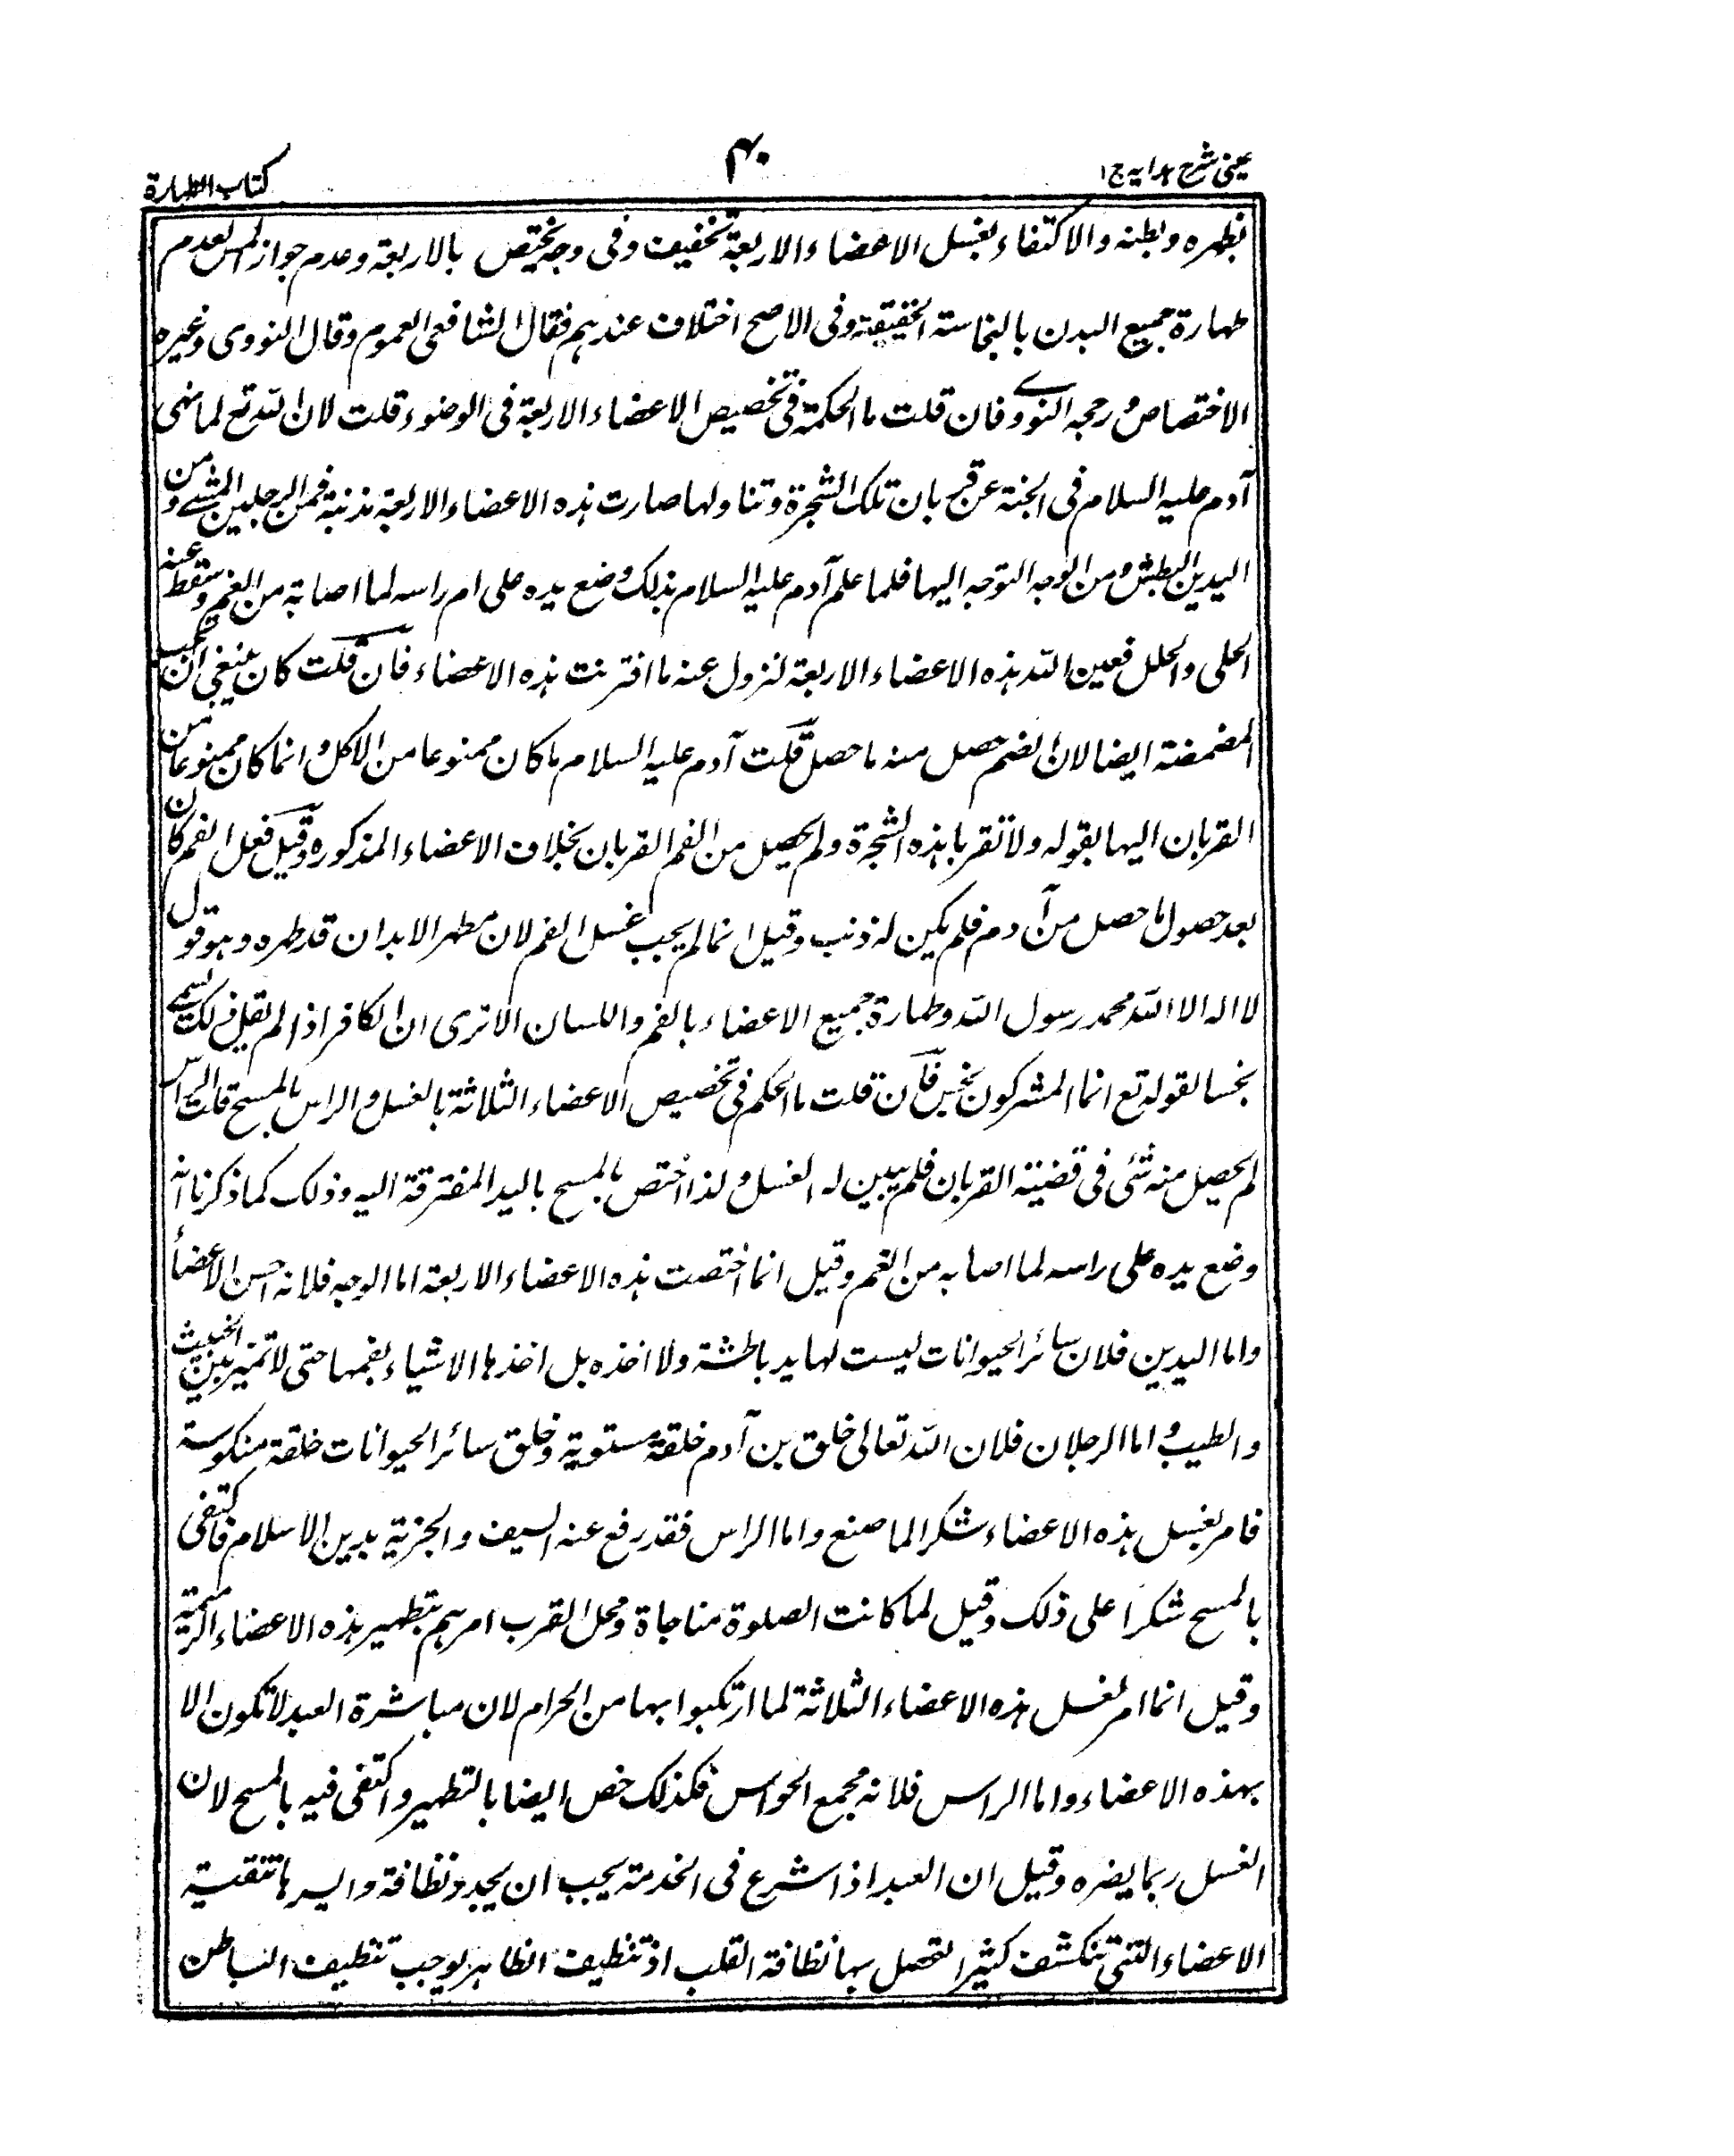 عینی شرح ہدایہ ج۱
۴۰
کتاب الطہارة
بظہرہ وبطنہ والاکتفاء بغسل الاعضاء والاربعة تخفیف وفی وجہ یختص بالاربعة وعدم جواز المس لعدم
طہارة جمیع البدن بالنجاستہ الحقیقتہ وفی الاصح اختلاف عندہم فقال الشافعی العموم وقال النووی وغیرہ
الاختصاص ورجحہ النووے فان قلت ما الحکمة فی تخصیص الاعضاء الاربعة فی الوضوء قلت لان اللہ تع لما نہی
آدم علیہ السلام فی الجنة عن قربان تلک الشجرة وتناولہا صارت ہذہ الاعضاء الاربعة مذنبة فمن الرجلین المشے ومن
الیدین البطش ومن الوجہ التوجہ الیہا فلما علم آدم علیہ السلام بذلک وضع یدہ علی ام راسہ لما اصابہ من الغم وسقط عنہ
الحلی والحلل فعین اللہ ہذہ الاعضاء الاربعة لنزول عنہ ما اقترنت ہذہ الاعضاء فان قلت کان ینبغی ان یجب
المضمضة ایضا لان الضم حصل منہ ما حصل قلت آدم علیہ السلام ما کان ممنوعا من الاکل وانما کان ممنوعا من
القربان الیہا بقولہ ولا تقربا ہذہ الشجرة ولم یحصل من الفم القربان بخلاف الاعضاء المذکورہ وقیل فعل الفم کان
بعد حصول ما حصل من آدم فلم یکن لہ ذنب وقیل انما لم یجب غسل الفم لان مطہر الابدان قد طہرہ وہو قول
لا الہ الا اللہ محمد رسول اللہ وطہارة جمیع الاعضاء بالفم واللسان الا تری ان الکافر اذا لم یقل ذلک یسمے
نجسا لقولہ تع انما المشرکون نجس فان قلت ما الحکم فی تخصیص الاعضاء الثلاثة بالغسل والراس بالمسح قلت الراس
لم یحصل منہ شئی فی قضیتہ القربان فلم یبین لہ الغسل ولذا اختص بالمسح بالید المفترقة الیہ وذلک کما ذکرنا انہ
وضع یدہ علی راسہ لما اصابہ من الغم وقیل انما اختصت ہذہ الاعضاء الاربعة اما الوجہ فلانہ احسن الاعضأ
واما الیدین فلان سائر الحیوانات لیست لہا ید باطشة ولا اخذہ بل اخذہا الاشیاء بفمہا حتی لا تمیز بین الخبیث
والطیب واما الرجلان فلان اللہ تعالی خلق بن آدم خلقة مستویة وخلق سائر الحیوانات خلقة منکوسة
فامر بغسل ہذہ الاعضاء شکرا لما صنع واما الراس فقد رفع عنہ السیف والجزیة بدین الاسلام فاکتفی
بالمسح شکرا علی ذلک وقیل لما کانت الصلوة مناجاة ومحل القرب امرہم بتطہیر ہذہ الاعضاء
وقیل انما امر بغسل ہذہ الاعضاء الثلاثة لما ارتکبوا بہا من الحرام لان مباشرة العبد لا تکون الا
بہذہ الاعضاء واما الراس فلانہ مجمع الحواس فکذلک خص ایضا بالتطہیر واکتفی فیہ بالمسح لان
الغسل ربما یضرہ وقیل ان العبد اذا شرع فی الخدمة یجب ان یجدد نظافة وایسرہا تنقیة
الاعضاء التتی تنکشف کثیرا لتحصل بہا نظافة القلب اذ تنظیف الظاہر یوجب تنظیف الباطن